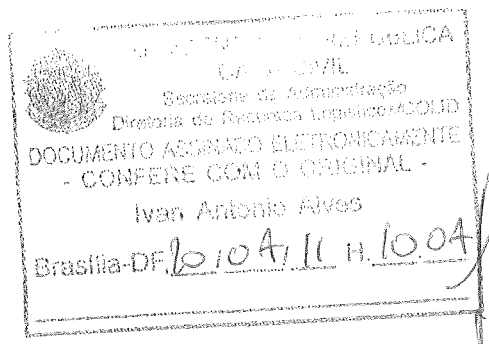 REPÚBLICA
CASA CIVIL
Secretaria de Administração
Diretoria de Recursos Logísticos/COLID
DOCUMENTO ASSINADO ELETRONICAMENTE
- CONFERE COM O ORIGINAL -
Ivan Antonio Alves
Brasília-DF, 20/04/11 H. 10:04